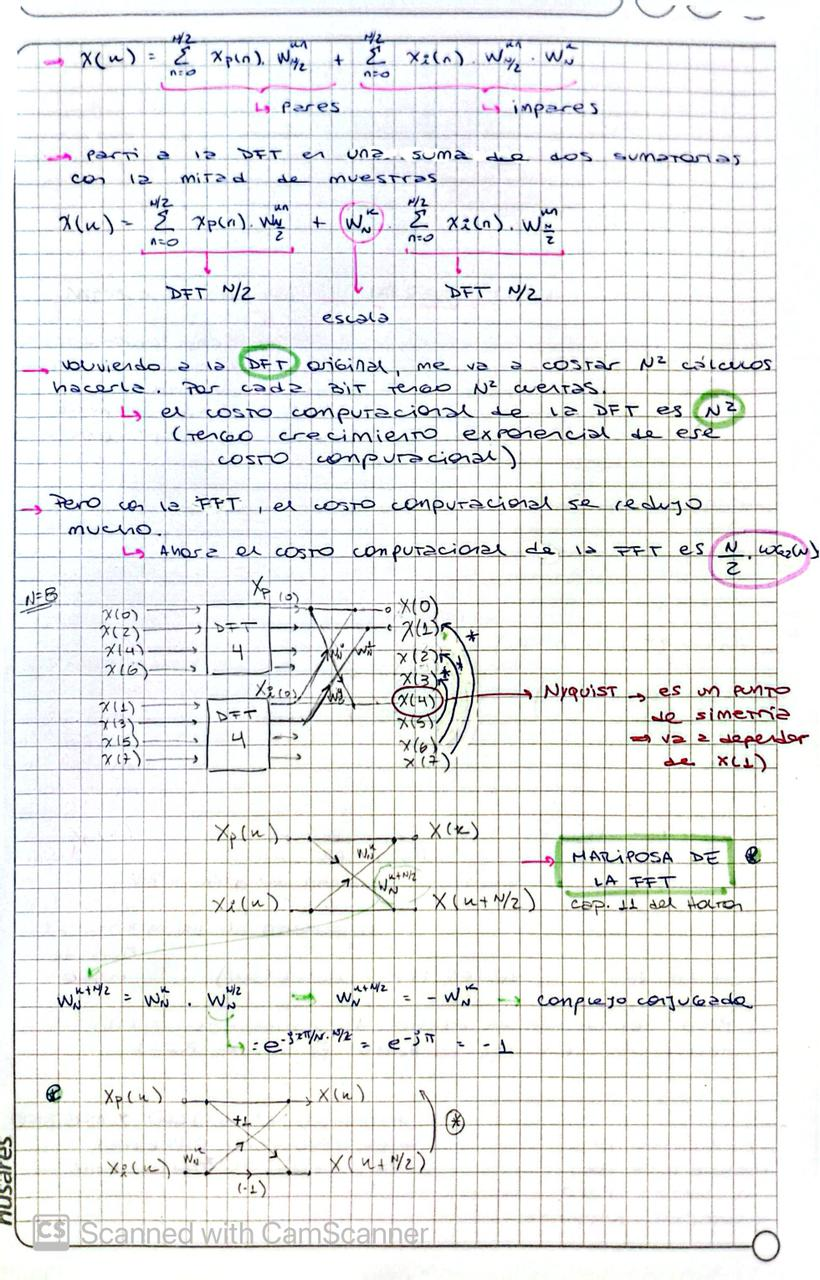 → X(k) = N/2 Σ n=0 Xp(n). W_{N/2}^{kn} + N/2 Σ n=0 Xi(n). W_{N/2}^{kn} . W_N^k
↳ pares ↳ impares
→ parti a la DFT en una suma de dos sumatorias
con la mitad de muestras
X(k) = N/2 Σ n=0 Xp(n). W_{N/2}^{kn} + W_N^k . N/2 Σ n=0 Xi(n). W_{N/2}^{kn}
DFT N/2 DFT N/2
escala
→ volviendo a la DFT original, me va a costar N² cálculos
hacerla. Por cada BIT tengo N² cuentas.
↳ el costo computacional de la DFT es N²
(tengo crecimiento exponencial de ese
costo computacional)
→ Pero con la FFT, el costo computacional se redujo
mucho.
↳ Ahora el costo computacional de la FFT es N/2 . LOG2(N)
N=8
Xp(0)
X(0) X(0)
X(2) DFT X(1)
X(4) 4 X(2)
X(6) X(3)
Xi(0)
X(4) → NYQUIST → es un punto
de simetría
⇒ va a depender
de X(1)
X(1) X(5)
X(3) DFT X(6)
X(5) 4 X(7)
X(7)
Xp(k) X(k)
W_N^k
W_N^{k+N/2}
Xi(k) X(k+N/2)
→ MARIPOSA DE
LA FFT
cap. 11 del
W_N^{k+N/2} = W_N^k . W_N^{N/2} → W_N^{k+N/2} = - W_N^k → complejo conjugado
↳ : e^{-j2π/N . N/2} = e^{-jπ} = -1
Xp(k) X(k)
+1
W_N^k
Xi(k) X(k+N/2)
(-1)
*
husares
CS Scanned with CamScanner